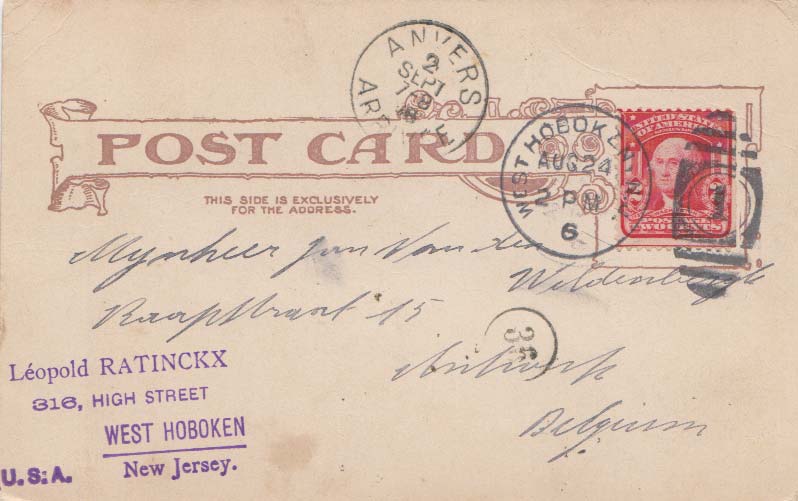 ANVERS
2
SEPT
7-8
POST CARD
THIS SIDE IS EXCLUSIVELY
FOR THE ADDRESS.
WEST HOBOKEN, N.J.
AUG 24
2 PM
6
UNITED STATES
OF AMERICA
2 2
POSTAGE
TWO CENTS
1
Mynheer Jan Van den
Wildenbergh
Raapstraat 15
36
Antwerp
Belgium
Léopold RATINCKX
316, HIGH STREET
WEST HOBOKEN
New Jersey.
U.S.A.